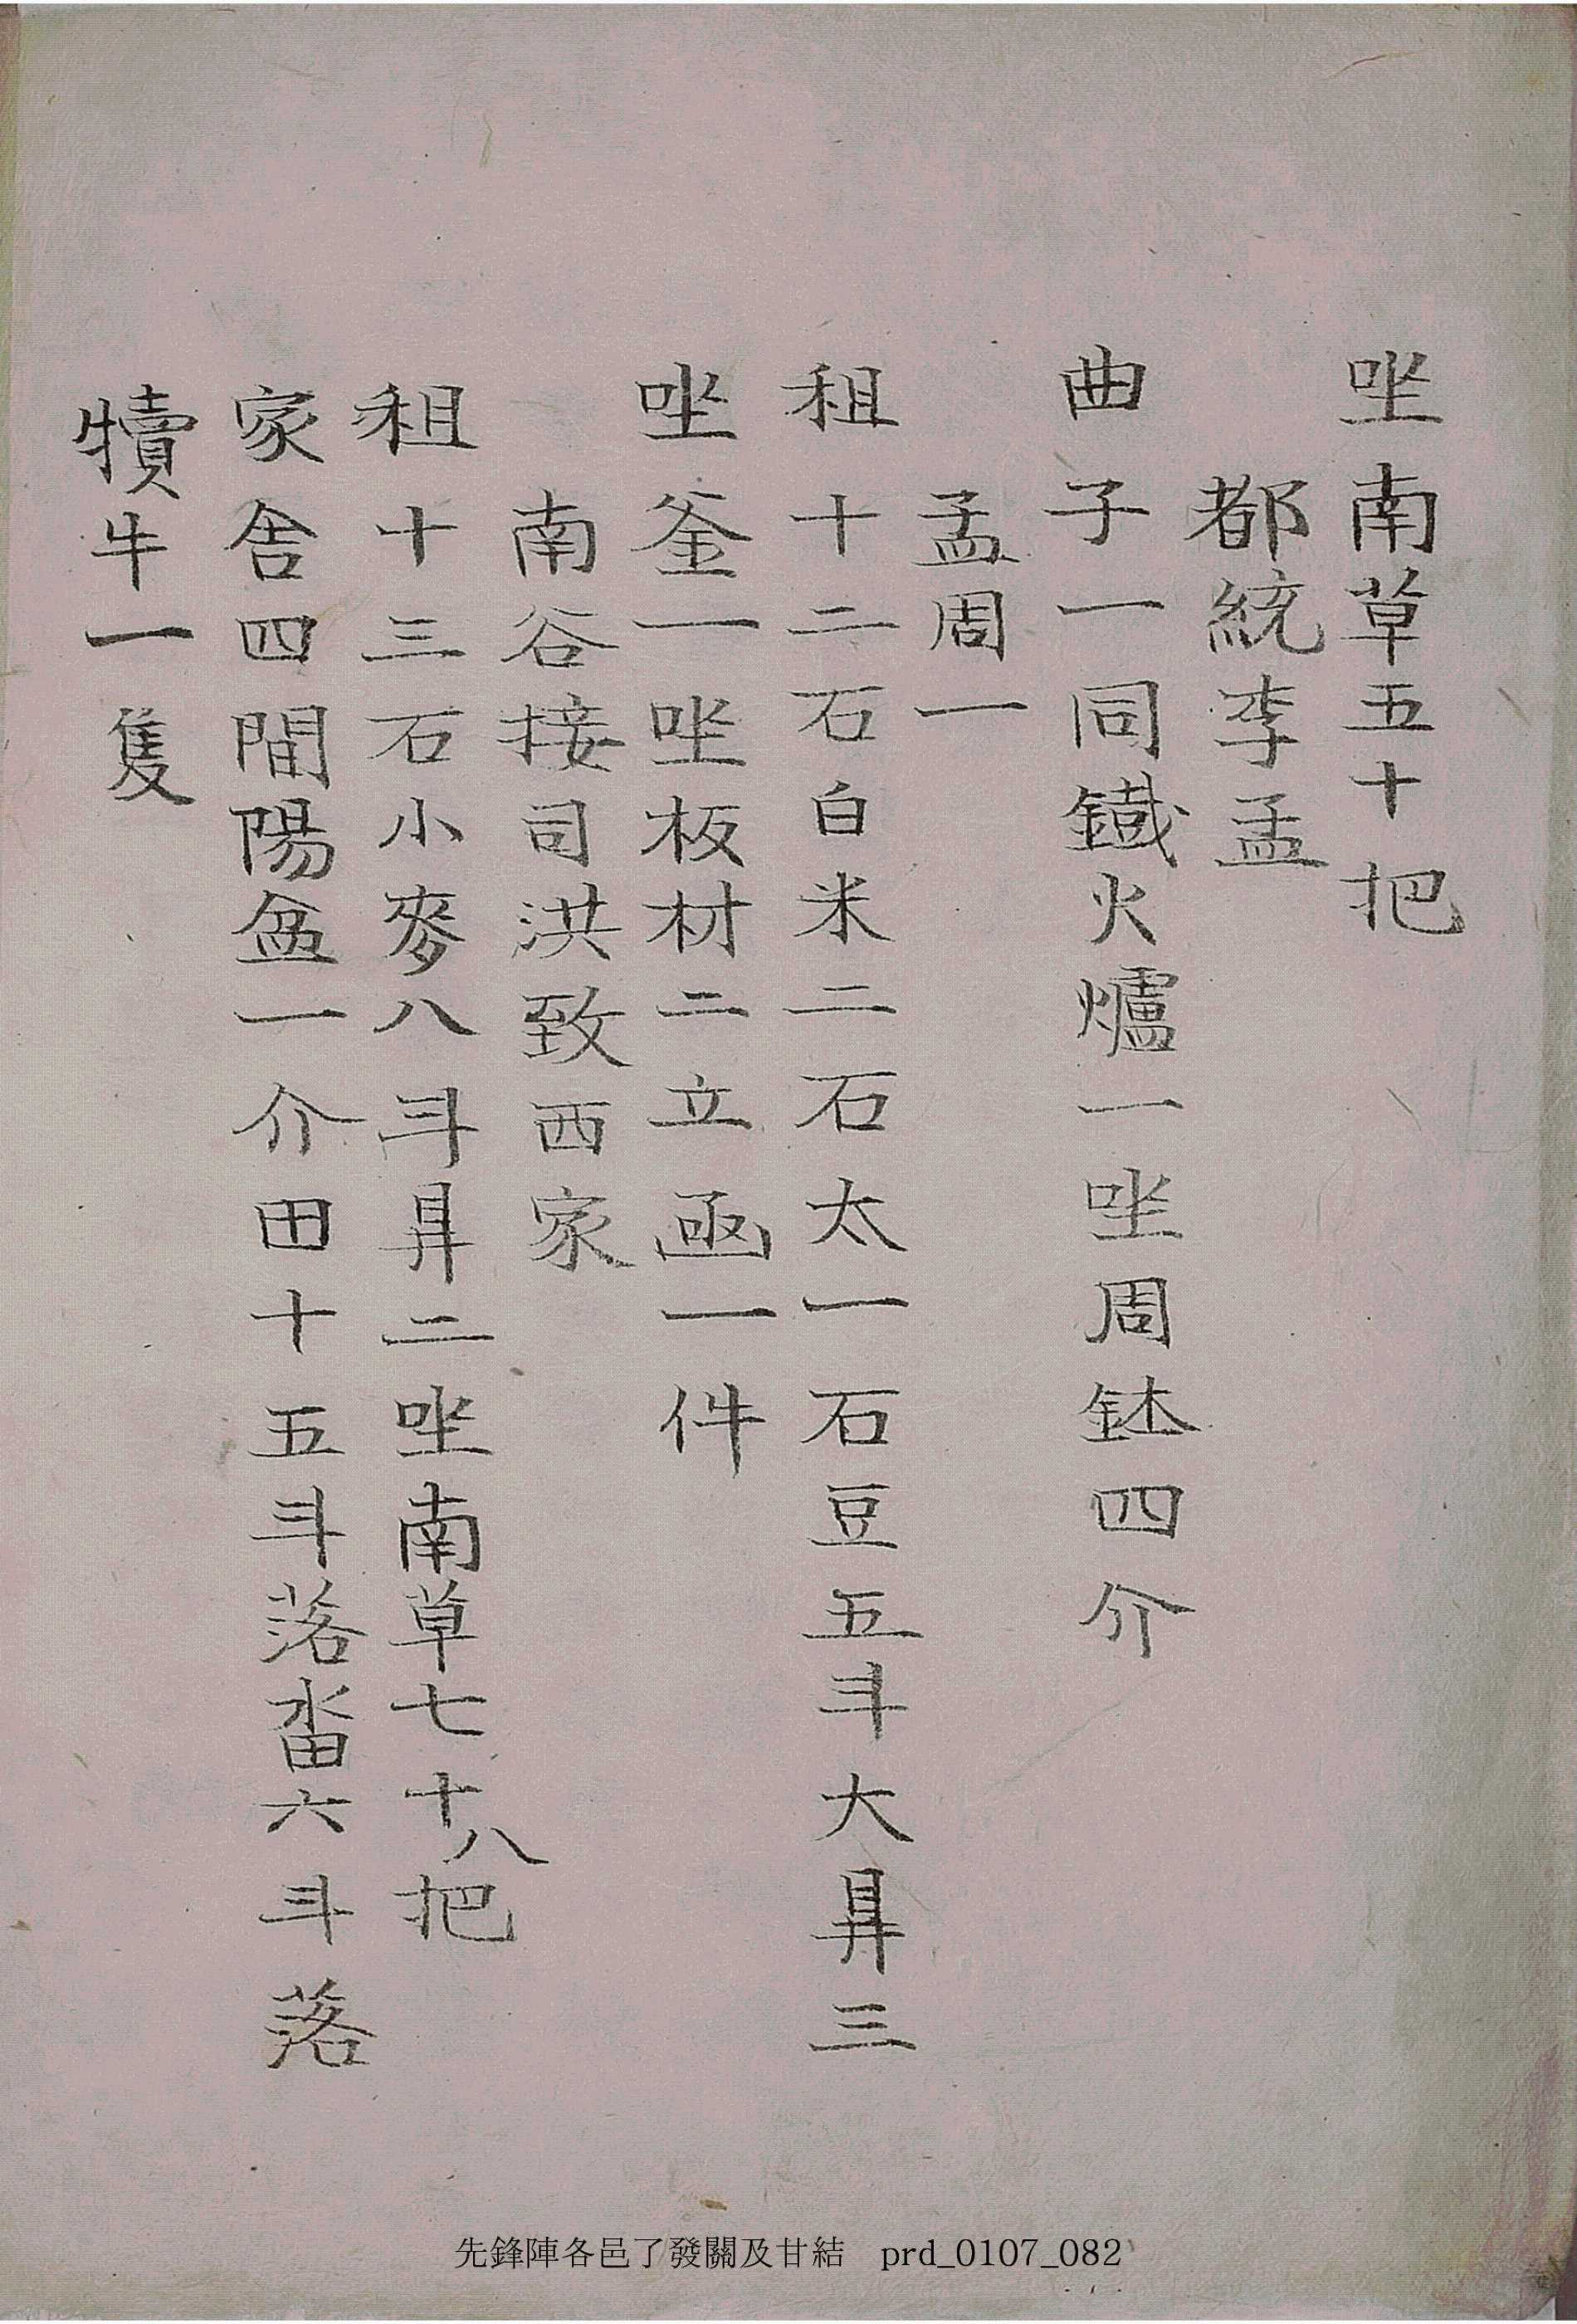 坐南草五十把
都統李孟
曲子一同鐵火爐一坐周鉢四介
孟周一
租十二石白米二石太一石豆五斗大鼎三
坐釜一坐板材二立凾一件
南谷接司洪致西家
租十三石小麥八斗鼎二坐南草七十八把
家舍四間陽盆一介田十五斗落畓六斗落
犢牛一隻
先鋒陣各邑了發關及甘結 prd_0107_082